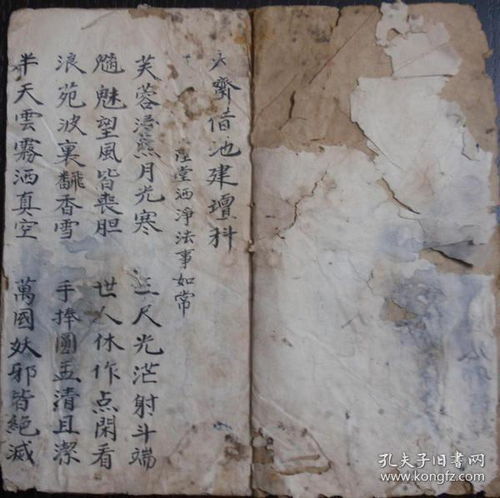 齋借地建壇科
陞堂洒淨法事如常
芙蓉月光寒 三尺光茫射斗端
魅望風皆喪胆 世人休作点閑看
浪苑波裏飜香雪 手捧圓盂清且潔
半天雲霧洒真空 萬國妖邪皆絕滅
孔夫子旧书网
www.kongfz.com